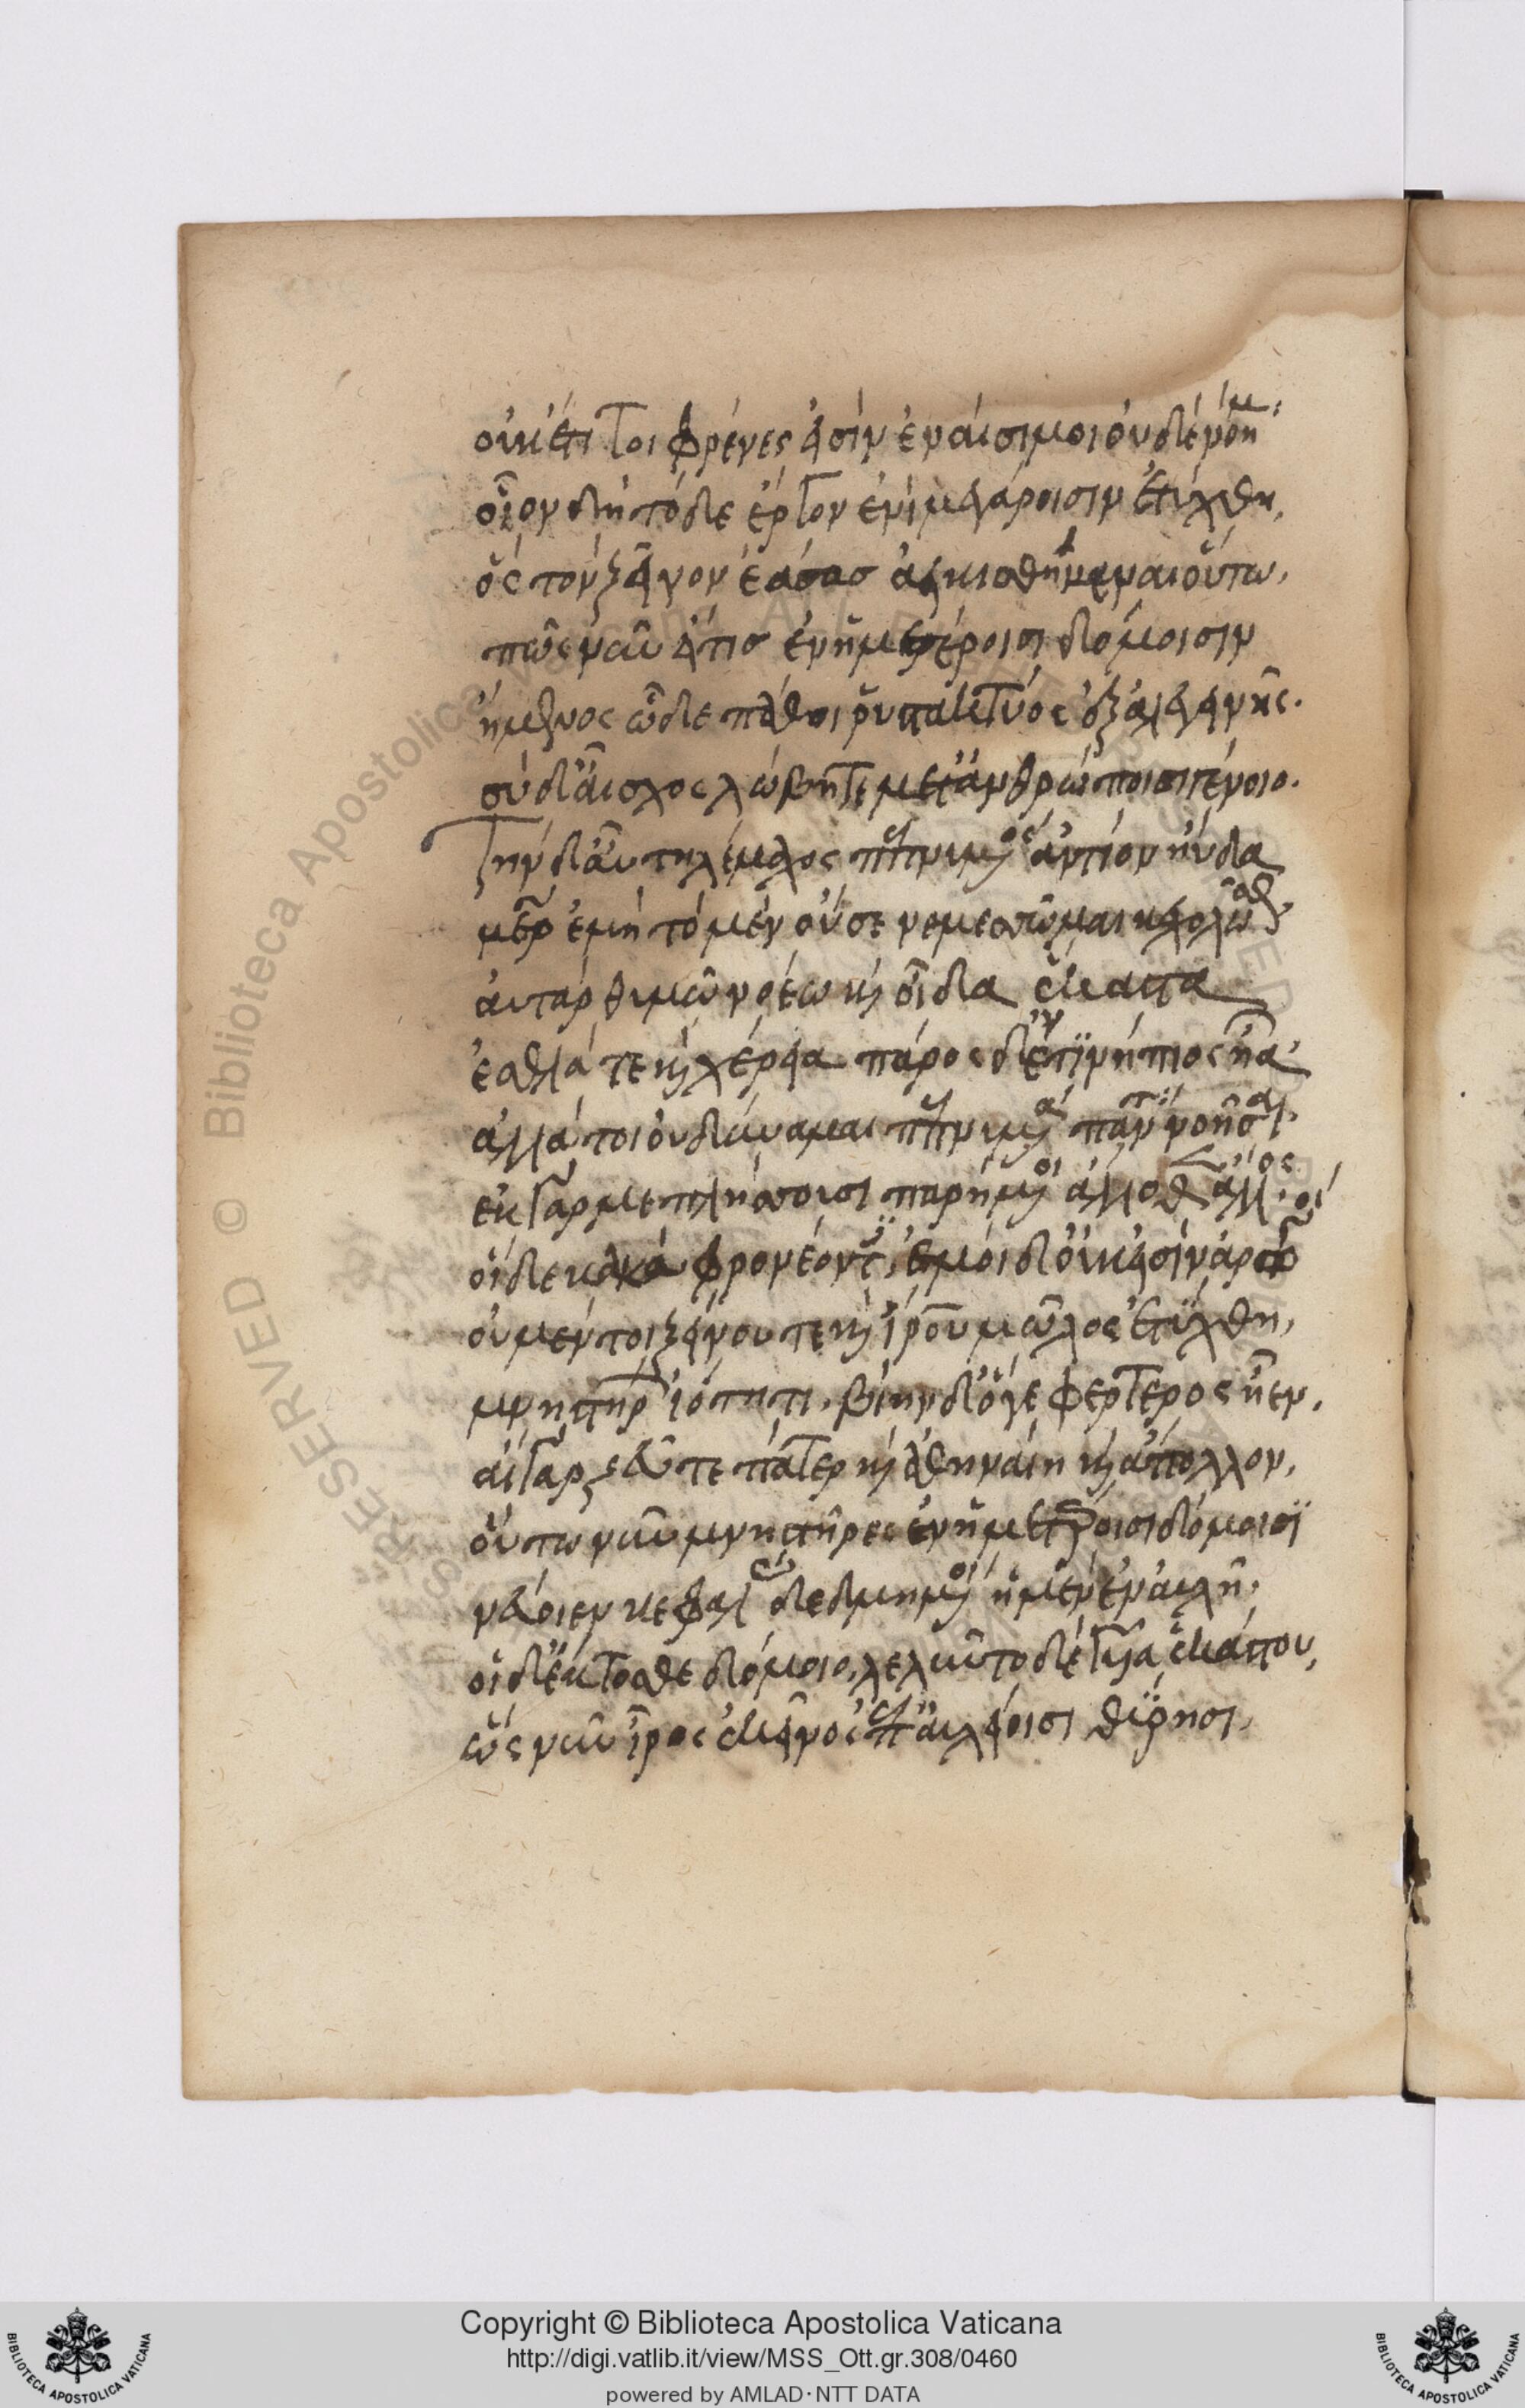 οὐκέτι τοι φρένες εἰσὶν ἐναίσιμοι οὐδὲ νόημ·
οἷον δὴ τόδε ἔργον ἐνὶ μεγάροισιν ἐτύχθη,
ὃς τὸν ξεῖνον ἔασας ἀεικισθήμεναι οὕτω,
πῶς νῦν εἴ τις ἐν ἡμετέροισι δόμοισιν
ἥμενος ὧδε πάθοι ῥυστακτύος ἐξ ἀλεγεινῆς.
σοὶ δ' αἶσχος λώβη τε μετ' ἀνθρώποισι πέλοιο.
τὴν δ' αὖ τηλέμαχος πεπνυμένος ἀντίον ηὔδα
μῆτερ ἐμὴ τὸ μὲν οὔ σε νεμεσσῶμαι κεχολῶσθ,
αὐτὰρ θυμῷ νοέω καὶ οἶδα ἕκαστα
ἐσθλά τε καὶ χέρεια πάρος δ' ἔτι νήπιος ἦα·
ἀλλά τοι οὐ δύναμαι πεπνυμένα πάντα νοῆσαι·
ἐκ γάρ με πλήσσουσι παρήμενοι ἄλλοθεν ἄλλος
οἵδε κακὰ φρονέοντες, ἐμοὶ δ' οὐκ εἰσὶν ἀρωγοί
οὐ μέν τοι ξείνου τε καὶ ἴρου μῶλος ἐτύχθη,
μνηστήρων ἰότητι, βίην δ' ὅγε φέρτερος ἦεν,
αἲ γὰρ ζεῦ τε πάτερ καὶ ἀθηναίη καὶ ἄπολλον,
οὕτω νῦν μνηστῆρες ἐν ἡμετέροισι δόμοισι
νεύοιεν κεφαλὰς δεδμημένοι ἠμὲν ἐν αὐλῇ,
οἱ δ' ἔκτοσθε δόμοιο, λελῦτο δὲ γυῖα ἑκάστου,
ὡς νῦν ἶρος ἐκεῖνος ἐπ' αὐλείοισι θύρῃσι,
Copyright © Biblioteca Apostolica Vaticana
http://digi.vatlib.it/view/MSS_Ott.gr.308/0460
powered by AMLAD·NTT DATA